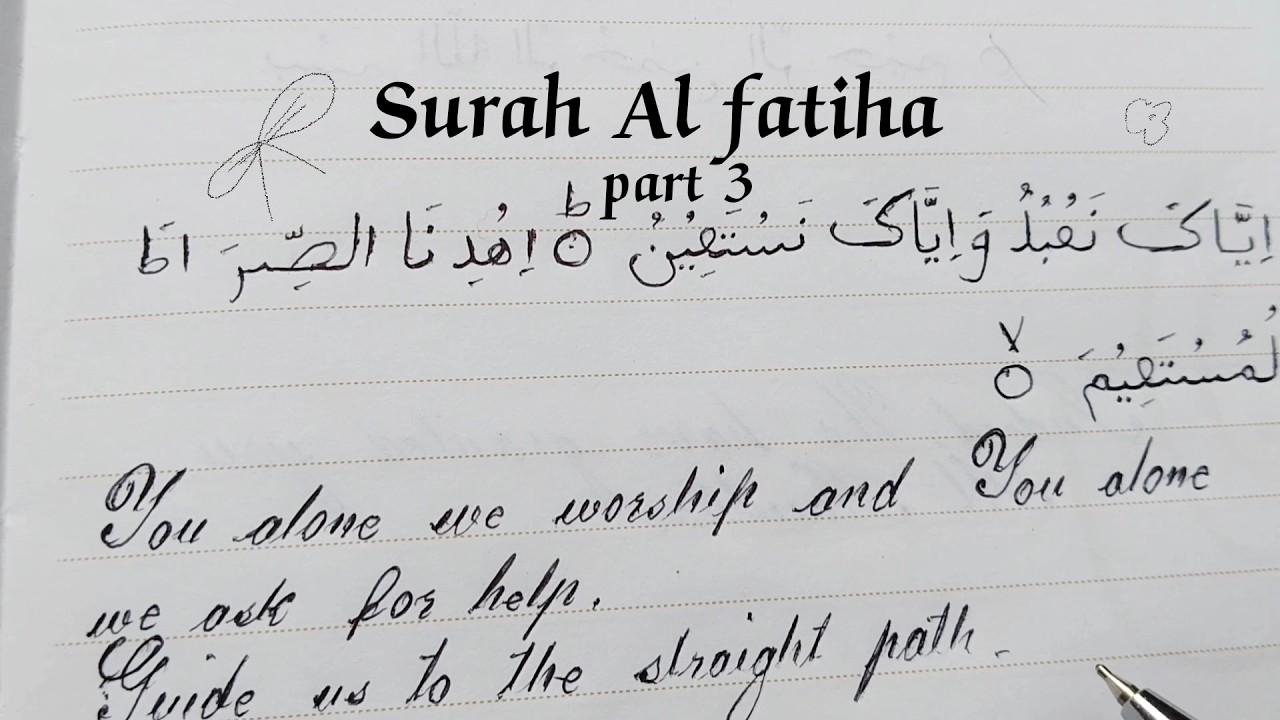 Surah Al fatiha
part 3
اِيَّاکَ نَعْبُدُ وَاِيَّاکَ نَسْتَعِيْنُ ؕ○ اِهْدِنَا الصِّرَ اطَ
لْمُسْتَقِيْمَ ۙ○
You alone we worship and You alone
we ask for help.
Guide us to the straight path.